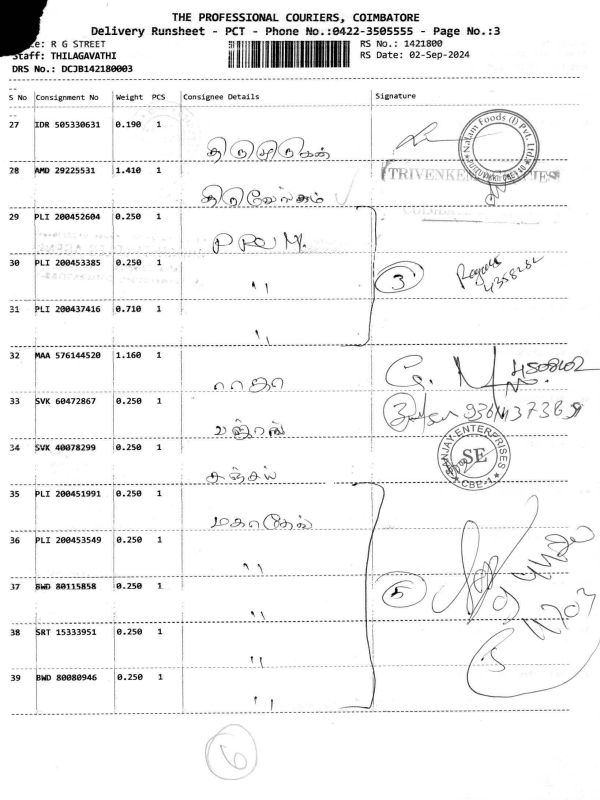 THE PROFESSIONAL COURIERS, COIMBATORE
Delivery Runsheet - PCT - Phone No.:0422-3505555 - Page No.:3
R G STREET
Staff: THILAGAVATHI
DRS No.: DCJB142180003
RS No.: 1421800
RS Date: 02-Sep-2024
S No Consignment No Weight PCS Consignee Details Signature
27 IDR 505330631 0.190 1
Nalam Foods (I) Pvt. Ltd.
28 AMD 29225531 1.410 1
29 PLI 200452604 0.250 1
30 PLI 200453385 0.250 1 " 3
31 PLI 200437416 0.710 1 "
32 MAA 576144520 1.160 1 ராதா
33 SVK 60472867 0.250 1
34 SVK 40078299 0.250 1 சஞ்சய்
SANJAY ENTERPRISES SE CBE-1
35 PLI 200451991 0.250 1
36 PLI 200453549 0.250 1 "
37 BWD 80115858 0.250 1 " 5
38 SRT 15333951 0.250 1 "
39 BWD 80080946 0.250 1 "
6